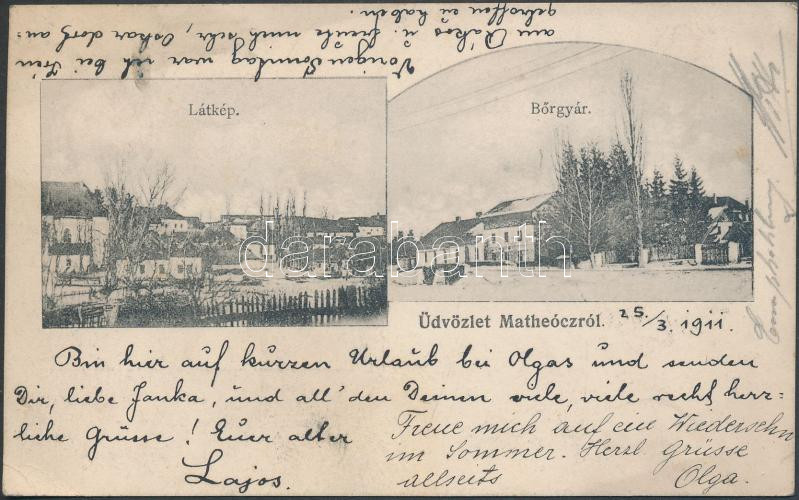 Vorigen Sonntag war ich bei
am Rákos u. freute mich sehr, Oskar dort an:
getroffen zu haben.
Látkép.
Bőrgyár.
darabanth
Üdvözlet Matheóczról. 25./3. 1911.
Bin hier auf kurzen Urlaub bei Olgas und senden
Dir, liebe Janka, und all' den Deinen viele, viele recht herz=
liche Grüsse! Euer alter
Lajos.
Freue mich auf ein Wiedersehn
im Sommer. Herzl. Grüsse
allseits Olga.